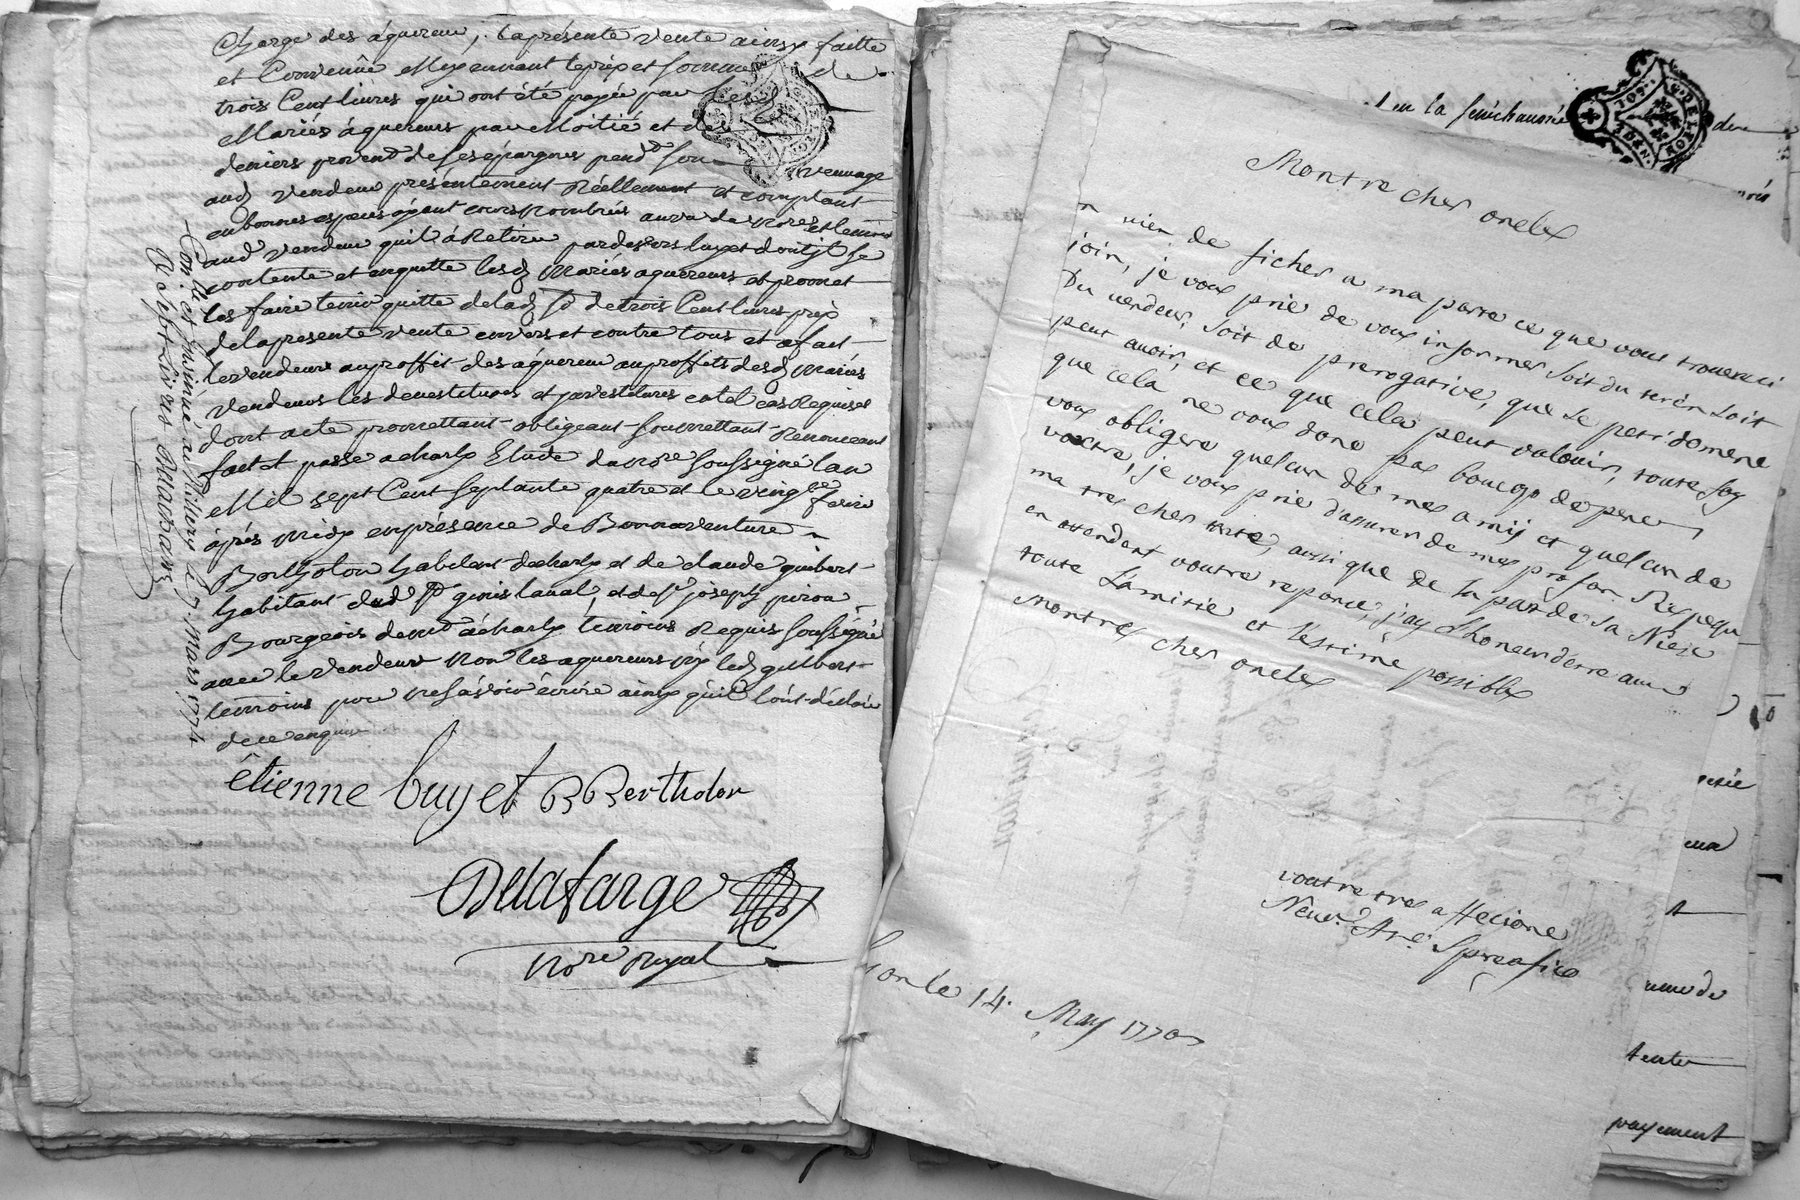 Charge des aquereur, la présente vente ainsy faitte
et Convenüe Moyennant le prix et somme de
trois Cent livres qui ont été payée par lesd
Mariés aquereurs par Moitié et de
deniers provent de ses épargnes pend son veuvage
aud vendeur présentement Réellement et comptant
en bonnes especes ayant cours nombrés au vu de nore et temoins
aud vendeur quil à Retiré par devers luy et dont il se
contente et en quitte lesd Mariés aquereurs et promet
les faire tenir quitte de lad so de trois Cent livres prix
de la presente vente envers et contre tous et a fait
le vendeur au proffit des aquereur au proffits desd Mariés
vendeurs les devestitures et jnvestitures en tel cas Requises
dont acte promettant obligeant soumettant Renonceant
fait et passé a charly Etude du nore soussigné l'an
Mil sept Cent septante quatre et le vingt
après midy en présence de Bonnaventure
Bertholon habitant de charly et de claude guibert
habitant dud St genis laval, et de sr joseph piron
Bourgeois demt à charly temoins Requis soussigné
avec le vendeur Non les aquereurs ny led guibert
temoins pour ne sçavoir écrire ainsy qu'il l'ont déclaré
de ce enquis
étienne buyet B Bertholon
Delafarge
Nore Royal
Con.lé et Insinué a Millery le 7 Mars 1774
Mazard
en la sénéchaussée de
Montre cher oncle
de ficher a ma parre ce que vous trouvereci
join, je vous prie de vous informer soit du terên soit
Du vendeur, soit de prerogative, que se peti domene
peut avoir, et ce que cela peut valouir, toute foy
que cela ne vous done pas boucop de pene,
vous obligere quelcun de mes amij et quelcun de
voctre, je vous prie d'assurer de mes profon Respequ
ma tres cher tante, aussi que de la par de sa Niese
en attendent voutre reponce, j'ay l'honeur d'etre avec
toute L'amitie et l'estime possible
Montre cher oncle
voutre tres affecione
Neuv. Ane Spreafico
Lyon le 14. May 1770
tente
payement